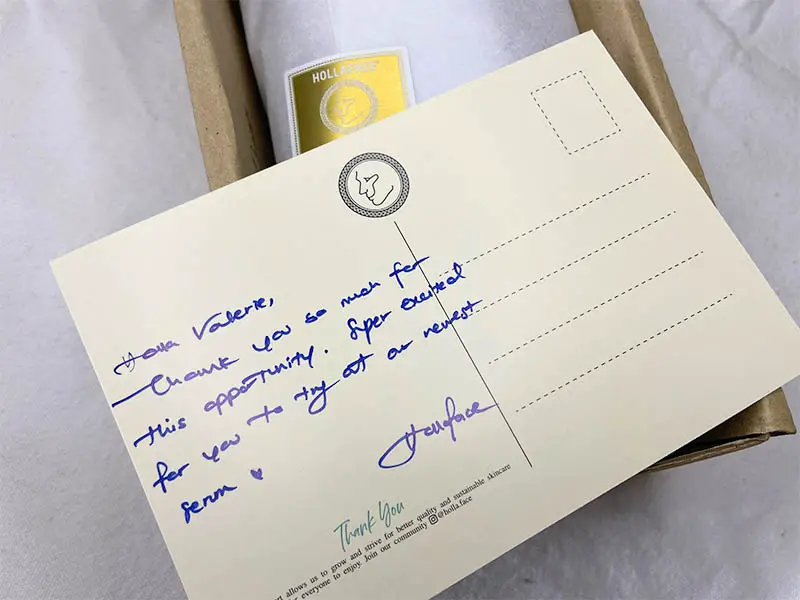 HOLLAFACE
Holla Valerie,
Thank you so much for
this opportunity. Super excited
for you to try out our newest
serum
Hollaface
Thank You
allows us to grow and strive for better quality and sustainable skincare
everyone to enjoy. Join our community @holla.face